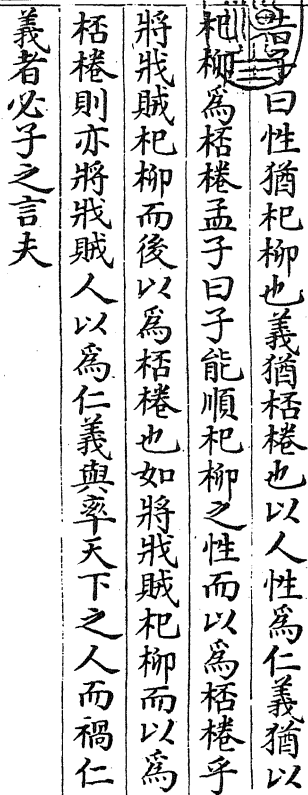 告子曰性猶杞柳也義猶桮棬也以人性爲仁義猶以
杞柳爲桮棬孟子曰子能順杞柳之性而以爲桮棬乎
將戕賊杞柳而後以爲桮棬也如將戕賊杞柳而以爲
桮棬則亦將戕賊人以爲仁義與率天下之人而禍仁
義者必子之言夫